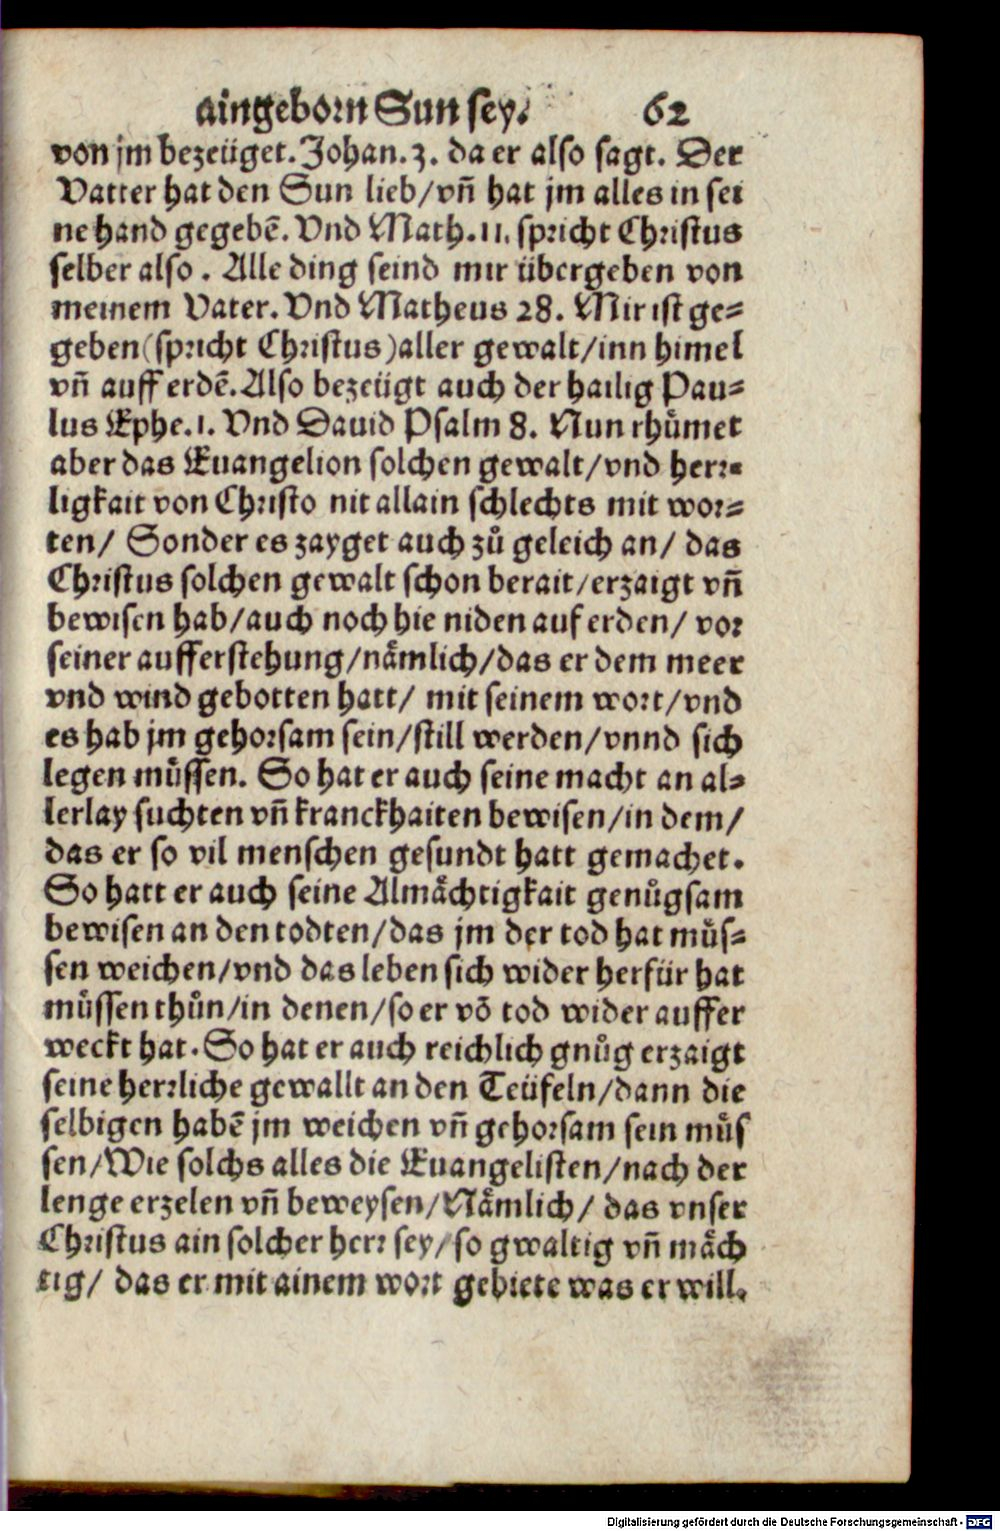 aingeborn Sun sey. 62
von jm bezeüget. Johan. 3. da er also sagt. Der
Vatter hat den Sun lieb/vñ hat jm alles in sei
ne hand gegebē. Vnd Math. 11. spricht Christus
selber also. Alle ding seind mir übergeben von
meinem Vater. Vnd Matheus 28. Mir ist ge=
geben (spricht Christus) aller gewalt/inn himel
vñ auff erdē. Also bezeügt auch der hailig Pau=
lus Ephe. 1. Vnd Dauid Psalm 8. Nun rhůmet
aber das Euangelion solchen gewalt/vnd herr=
ligkait von Christo nit allain schlechts mit wor=
ten/ Sonder es zayget auch zů geleich an/ das
Christus solchen gewalt schon berait/erzaigt vñ
bewisen hab/auch noch hie niden auf erden/ vor
seiner aufferstehung/nåmlich/das er dem meer
vnd wind gebotten hatt/ mit seinem wort/vnd
es hab jm gehorsam sein/still werden/vnnd sich
legen můssen. So hat er auch seine macht an al=
lerlay suchten vñ kranckhaiten bewisen/in dem/
das er so vil menschen gesundt hatt gemachet.
So hatt er auch seine Almåchtigkait genůgsam
bewisen an den todten/das jm der tod hat můs=
sen weichen/vnd das leben sich wider herfür hat
můssen thůn/in denen/so er vō tod wider auffer
weckt hat. So hat er auch reichlich gnůg erzaigt
seine herrliche gewallt an den Teüfeln/dann die
selbigen habē jm weichen vñ gehorsam sein můs
sen/Wie solchs alles die Euangelisten/nach der
lenge erzelen vñ beweysen/Nåmlich/ das vnser
Christus ain solcher herr sey/so gwaltig vñ måch
tig/ das er mit ainem wort gebiete was er will.
Digitalisierung gefördert durch die Deutsche Forschungsgemeinschaft - DFG